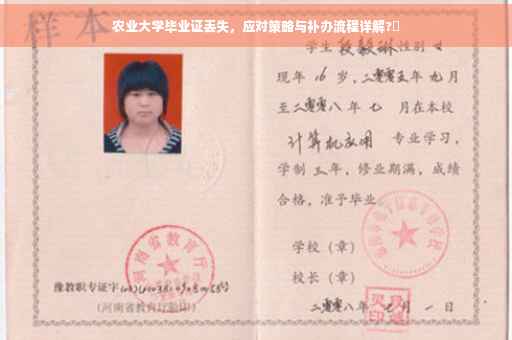 农业大学毕业证丢失，应对策略与补办流程详解?
样本
学生段毅琳性别女
现年16岁，二零零五年九月
至二零零八年七月在本校
计算机应用 专业学习，
学制三年，修业期满，成绩
合格，准予毕业。
学校（章）
校长（章）
二零零八年 月一日
河南省教育厅
豫教职专证字
(河南省教育厅验印)